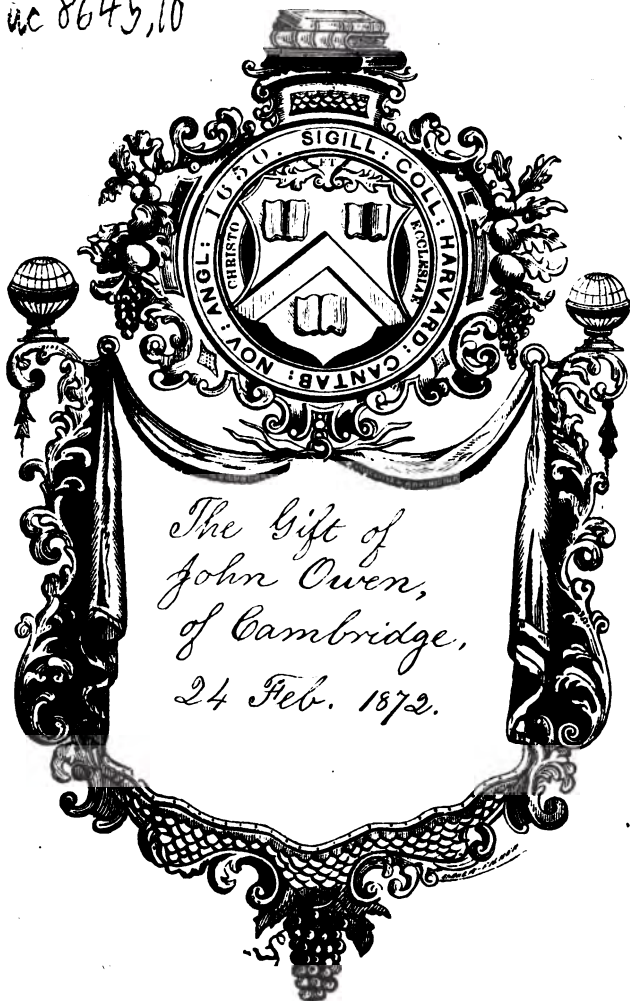 8645,10
SIGILL: COLL: HARVARD: CANTAB: NOV: ANGL: 1650.
ET
CHRISTO
ECCLESIAE
The Gift of
John Owen,
of Cambridge,
24 Feb. 1872.